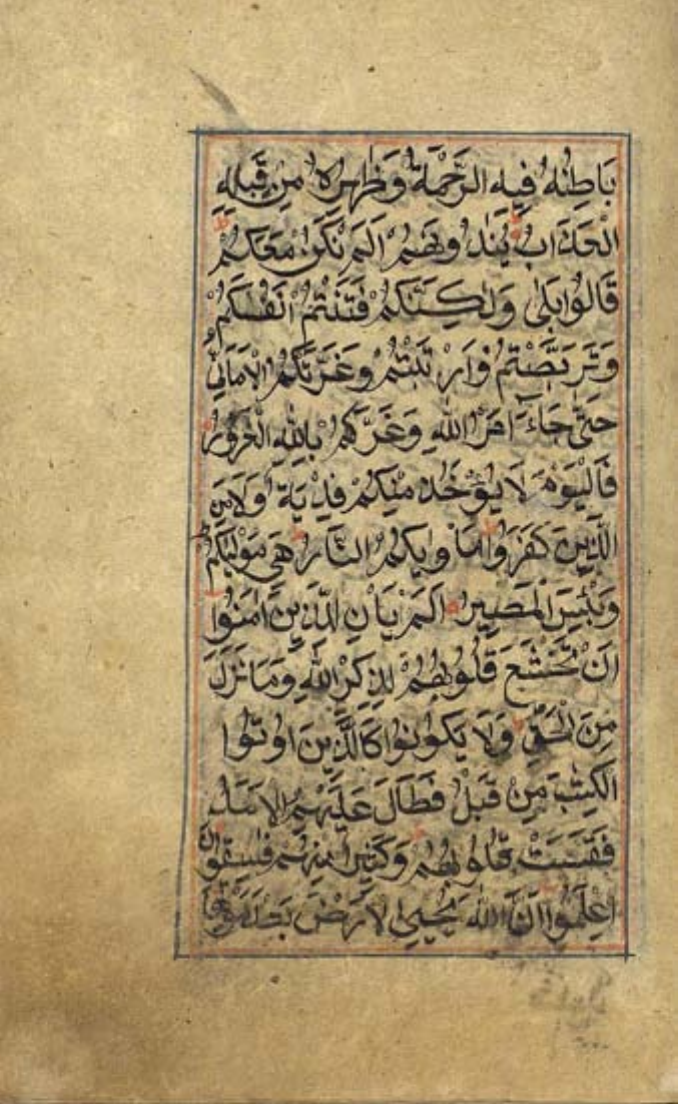 بَاطِنُهُ فِيهِ الرَّحْمَةُ وَظَاهِرُهُ مِنْ قِبَلِهِ
الْعَذَابُ يُنَادُونَهُمْ اَلَمْ نَكُنْ مَعَكُمْ
قَالُوا بَلٰى وَلٰكِنَّكُمْ فَتَنْتُمْ اَنْفُسَكُمْ
وَتَرَبَّصْتُمْ وَارْتَبْتُمْ وَغَرَّتْكُمُ الْاَمَانِيُّ
حَتّٰى جَاءَ اَمْرُ اللّٰهِ وَغَرَّكُمْ بِاللّٰهِ الْغَرُورُ
فَالْيَوْمَ لَا يُؤْخَذُ مِنْكُمْ فِدْيَةٌ وَلَا مِنَ
الَّذِينَ كَفَرُوا مَاْوٰيكُمُ النَّارُ هِىَ مَوْلٰيكُمْ
وَبِئْسَ الْمَصِيرُ اَلَمْ يَاْنِ لِلَّذِينَ اٰمَنُوا
اَنْ تَخْشَعَ قُلُوبُهُمْ لِذِكْرِ اللّٰهِ وَمَا نَزَلَ
مِنَ الْحَقِّ وَلَا يَكُونُوا كَالَّذِينَ اُوتُوا
الْكِتٰبَ مِنْ قَبْلُ فَطَالَ عَلَيْهِمُ الْاَمَدُ
فَقَسَتْ قُلُوبُهُمْ وَكَثِيرٌ مِنْهُمْ فٰسِقُونَ
اِعْلَمُوا اَنَّ اللّٰهَ يُحْيِى الْاَرْضَ بَعْدَ مَوْتِهَا